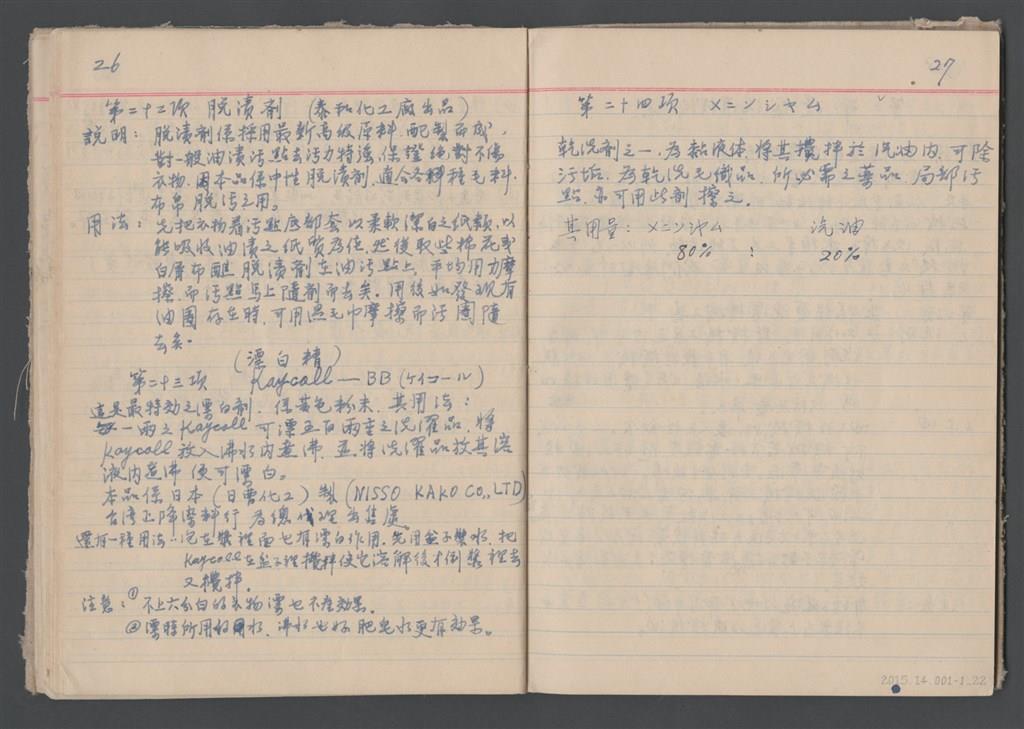 26
第二十二項 脫漬劑 (泰和化工廠出品)
說明: 脫漬劑係採用最新高級原料.配製而成.
對一般油漬污點去污力特強.保證絕對不傷
衣物.因本品係中性脫漬劑.適合各種毛料.
布帛脫污之用。
用法: 先把衣物着污點底部套以柔軟潔白之紙類.以
能吸收油漬之紙質為佳.然後取些棉花或
白屑布醮脫漬劑在油污點上.平均用力摩
擦.而污點馬上隨劑而去矣.用後如發現有
油圈存在時.可用濕毛巾摩擦而污圈隨
去矣.
(漂白精)
第二十三項 Kaycall—BB (ケイコール)
這是最特効之漂白劑.係黃色粉末.其用法:
每一兩之Kaycall可漂五百兩重之洗濯品.將
Kaycall放入沸水內煮沸.並將洗濯品放其溶
液內煮沸便可漂白。
本品係日本(日曹化工)製(NISSO KAKO CO.,LTD)
台灣正隆染料行為總代理出售處
還有一種用法—泡在漿裡面也有漂白作用.先用盆子裝水.把
Kaycall在盆子裡攪拌使它溶解後才倒漿裡去
又攪拌.
注意:①不上六分白的衣物漂也不產効果.
②漂時所用的水.沸水也好肥皂水更有効果。
27
第二十四項 メニンシヤム
乾洗劑之一.為黏液体.將其攪拌於汽油內.可除
污垢.為乾洗毛織品.所必需之藥品.局部污
點.亦可用此劑擦之.
其用量: メニンシヤム 汽油
80% : 20%
2015.14.001-1_22